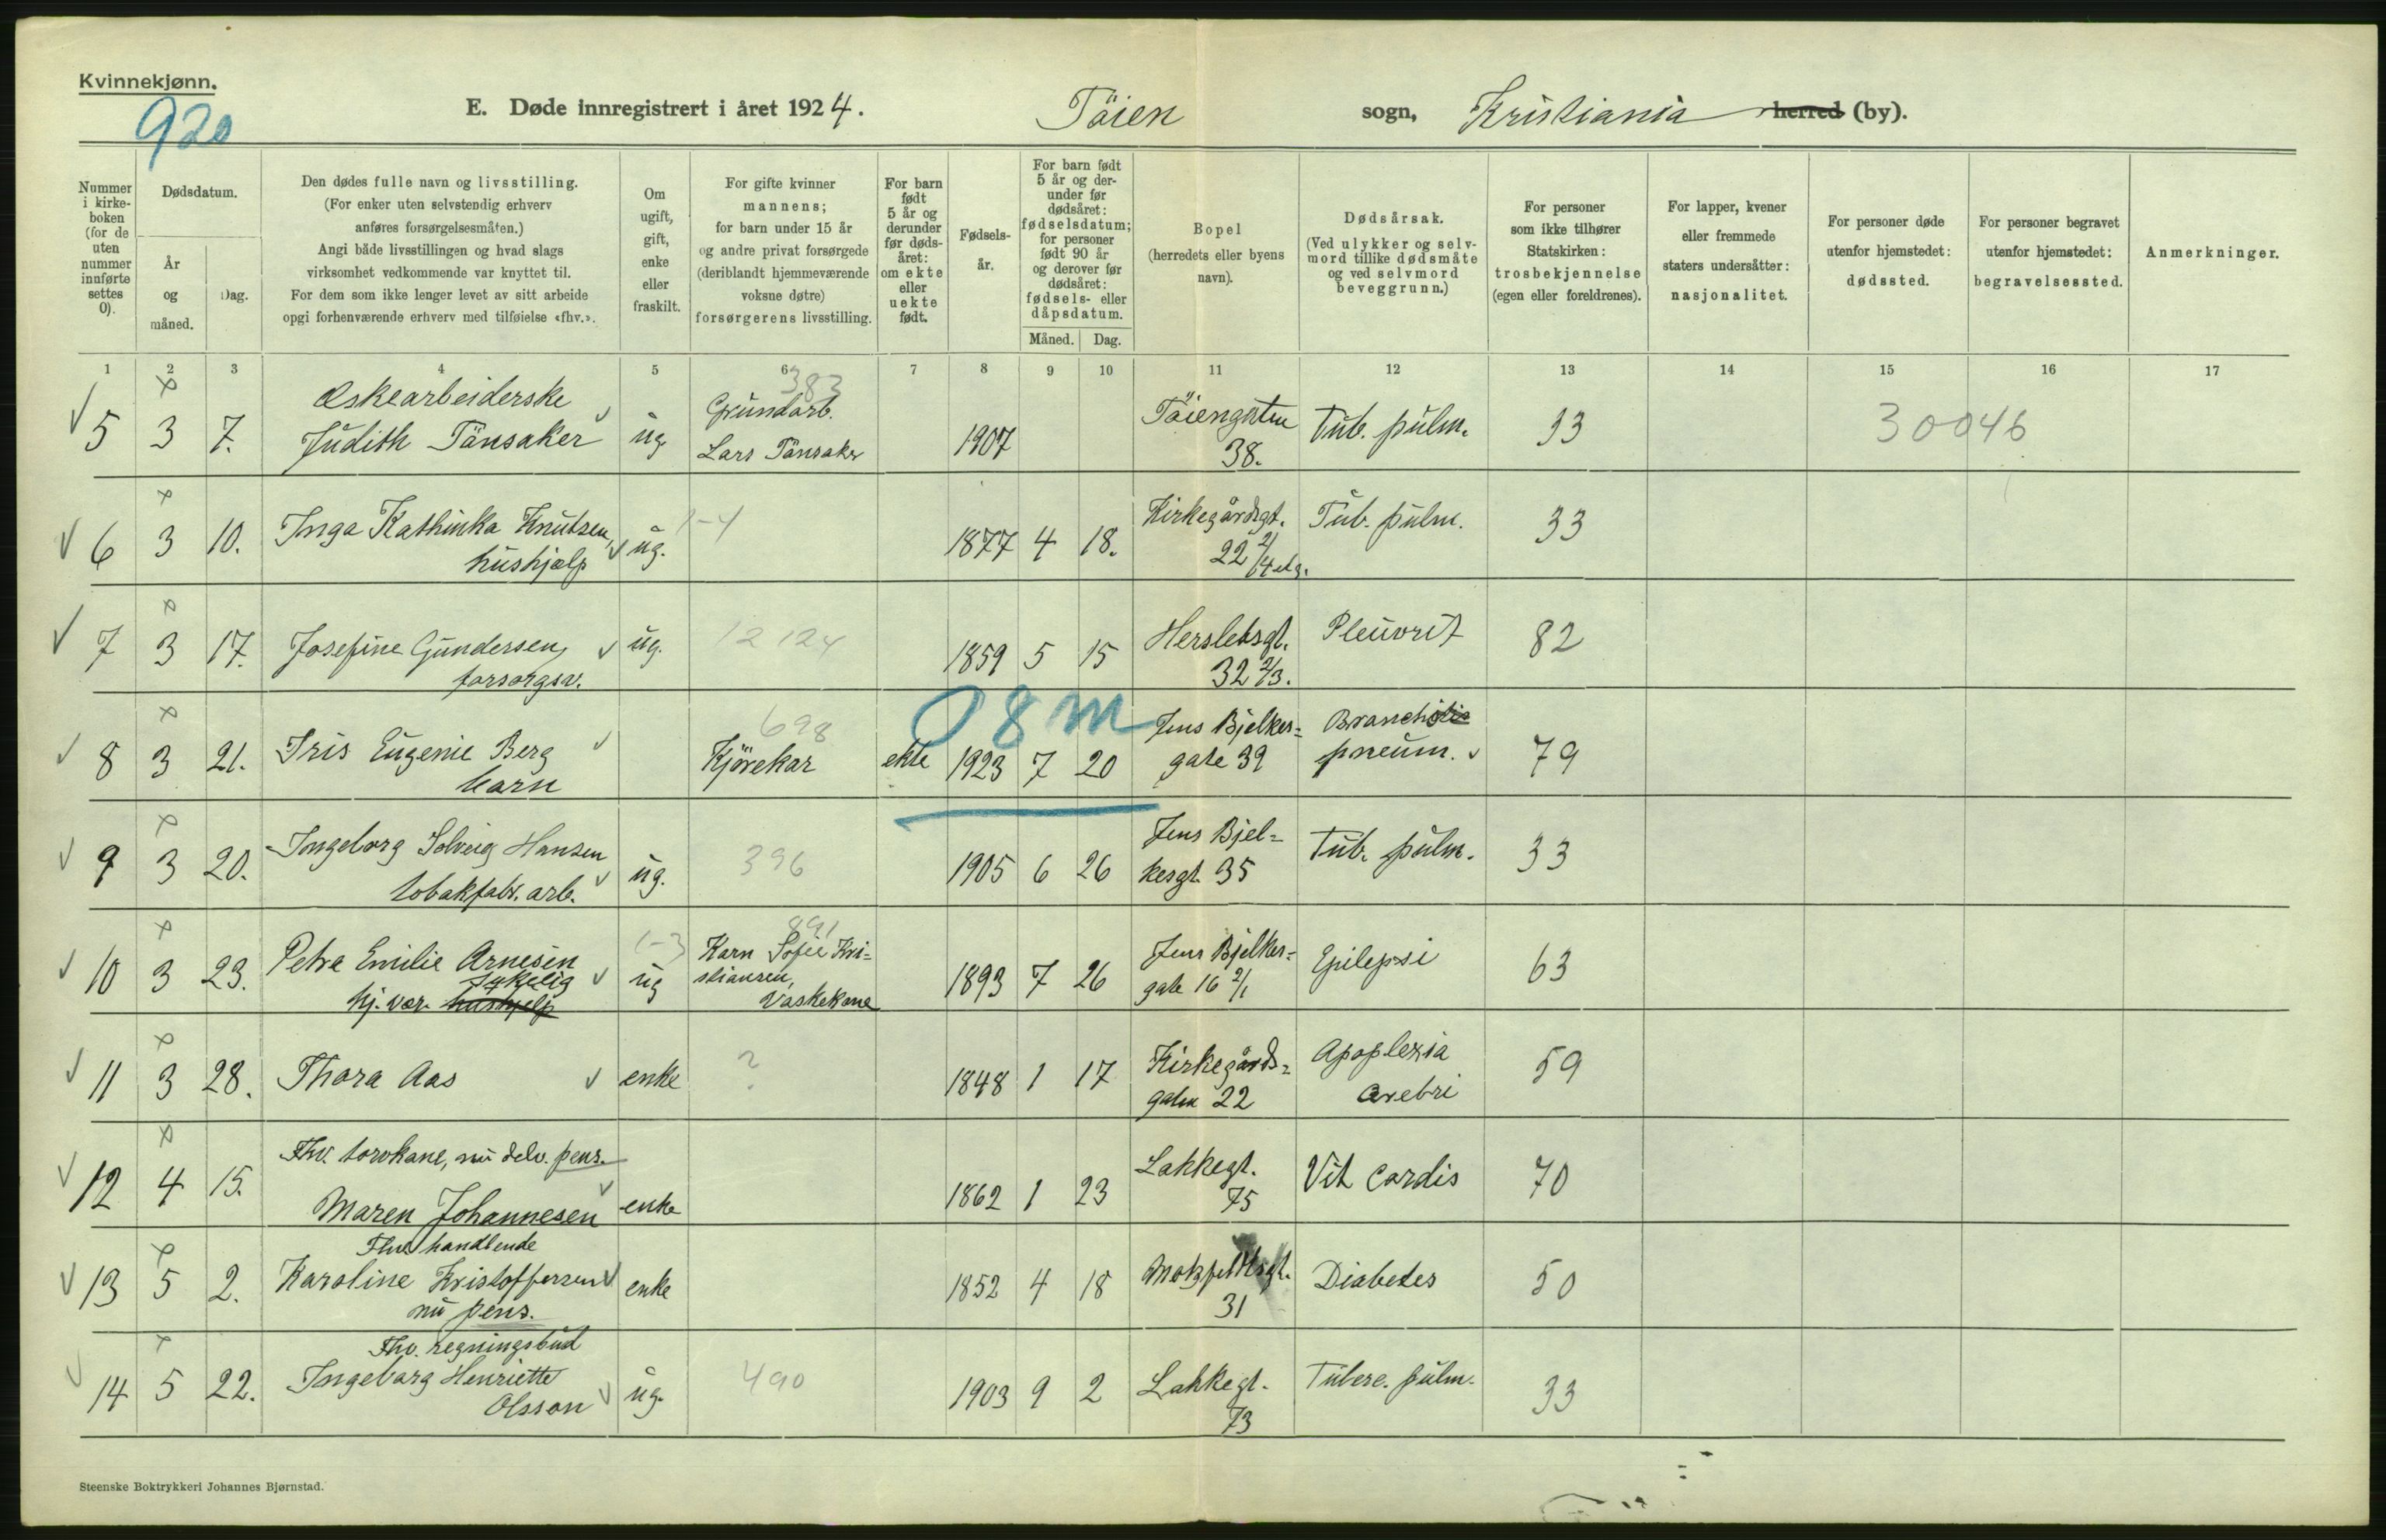 Kvinnekjønn.
920
E. Døde innregistrert i året 1924. Töien sogn, Kristiania herred (by).
Nummer i kirke-boken (for de uten nummer innførte settes 0).
Dødsdatum.
År og måned.
Dag.
Den dødes fulle navn og livsstilling.
(For enker uten selvstendig erhverv
anføres forsørgelsesmåten.)
Angi både livsstillingen og hvad slags
virksomhet vedkommende var knyttet til.
For dem som ikke lenger levet av sitt arbeide
opgi forhenværende erhverv med tilføielse «fhv.».
Om ugift, gift, enke eller fraskilt.
For gifte kvinner
mannens;
for barn under 15 år
og andre privat forsørgede
(deriblandt hjemmeværende
voksne døtre)
forsørgerens livsstilling.
For barn født 5 år og derunder før døds-året: om ekte eller uekte født.
Fødsels-år.
For barn født 5 år og der-under før dødsåret: fødselsdatum; for personer født 90 år og derover før dødsåret: fødsels- eller dåpsdatum.
Måned. Dag.
Bopel
(herredets eller byens
navn).
Dødsårsak.
(Ved ulykker og selv-
mord tillike dødsmåte
og ved selvmord
beveggrunn.)
For personer
som ikke tilhører
Statskirken:
trosbekjennelse
(egen eller foreldrenes).
For lapper, kvener
eller fremmede
staters undersåtter:
nasjonalitet.
For personer døde
utenfor hjemstedet:
dødssted.
For personer begravet
utenfor hjemstedet:
begravelsessted.
Anmerkninger.
1 2 3 4 5 6 7 8 9 10 11 12 13 14 15 16 17
Æskearbeiderske 383
5 3 7. Judith Tänsaker ug Grundarb. Lars Tänsaker 1907 Töiengaten 38. Tub. pulm. 33 30046
6 3 10. Inga Kathinka Knutsen, hushjælp ug. 1-4 1877 4 18. Kirkegårdsgt. 22 2/4 etg. Tub. pulm. 33
7 3 17. Josefine Gundersen, forsørgsv. ug. 12124 1859 5 15 Herslebsgt. 32 2/3. Pleuvrit 82
08m
8 3 21. Iris Eugenie Berg barn 698 Kjörekar ekte 1923 7 20 Jens Bjelkes=gate 39 Bronchitis pneum. 79
9 3 20. Ingeborg Solveig Hansen tobakfabr. arb. ug. 396 1905 6 26 Jens Bjel=kesgt. 35 Tub. pulm. 33
10 3 23. Petra Emilie Arnesen sykelig hj. vær. hushjelp 1-3 ug 891 Karn Sofie Kri=stiansen, Vaskekone 1893 7 26 Jens Bjelkes=gate 16 2/1 Epilepsi 63
11 3 28. Thora Aas enke ? 1848 1 17 Kirkegårds=gaten 22 Apoplexia cerebri 59
12 4 15. Fhv. torvkone, nu delv. pens. Maren Johannesen enke 1862 1 23 Lakkegt. 75 Vit Cordis 70
13 5 2. Fhv. handlende Karoline Kristoffersen nu pens. enke 1852 4 18 Motzfeldtsgt. 31 Diabetes 50
14 5 22. Fhv. regningsbud Ingeborg Henriette Olsson ug. 490 1903 9 2 Lakkegt. 73 Tuberc. pulm. 33
Steenske Boktrykkeri Johannes Bjørnstad.